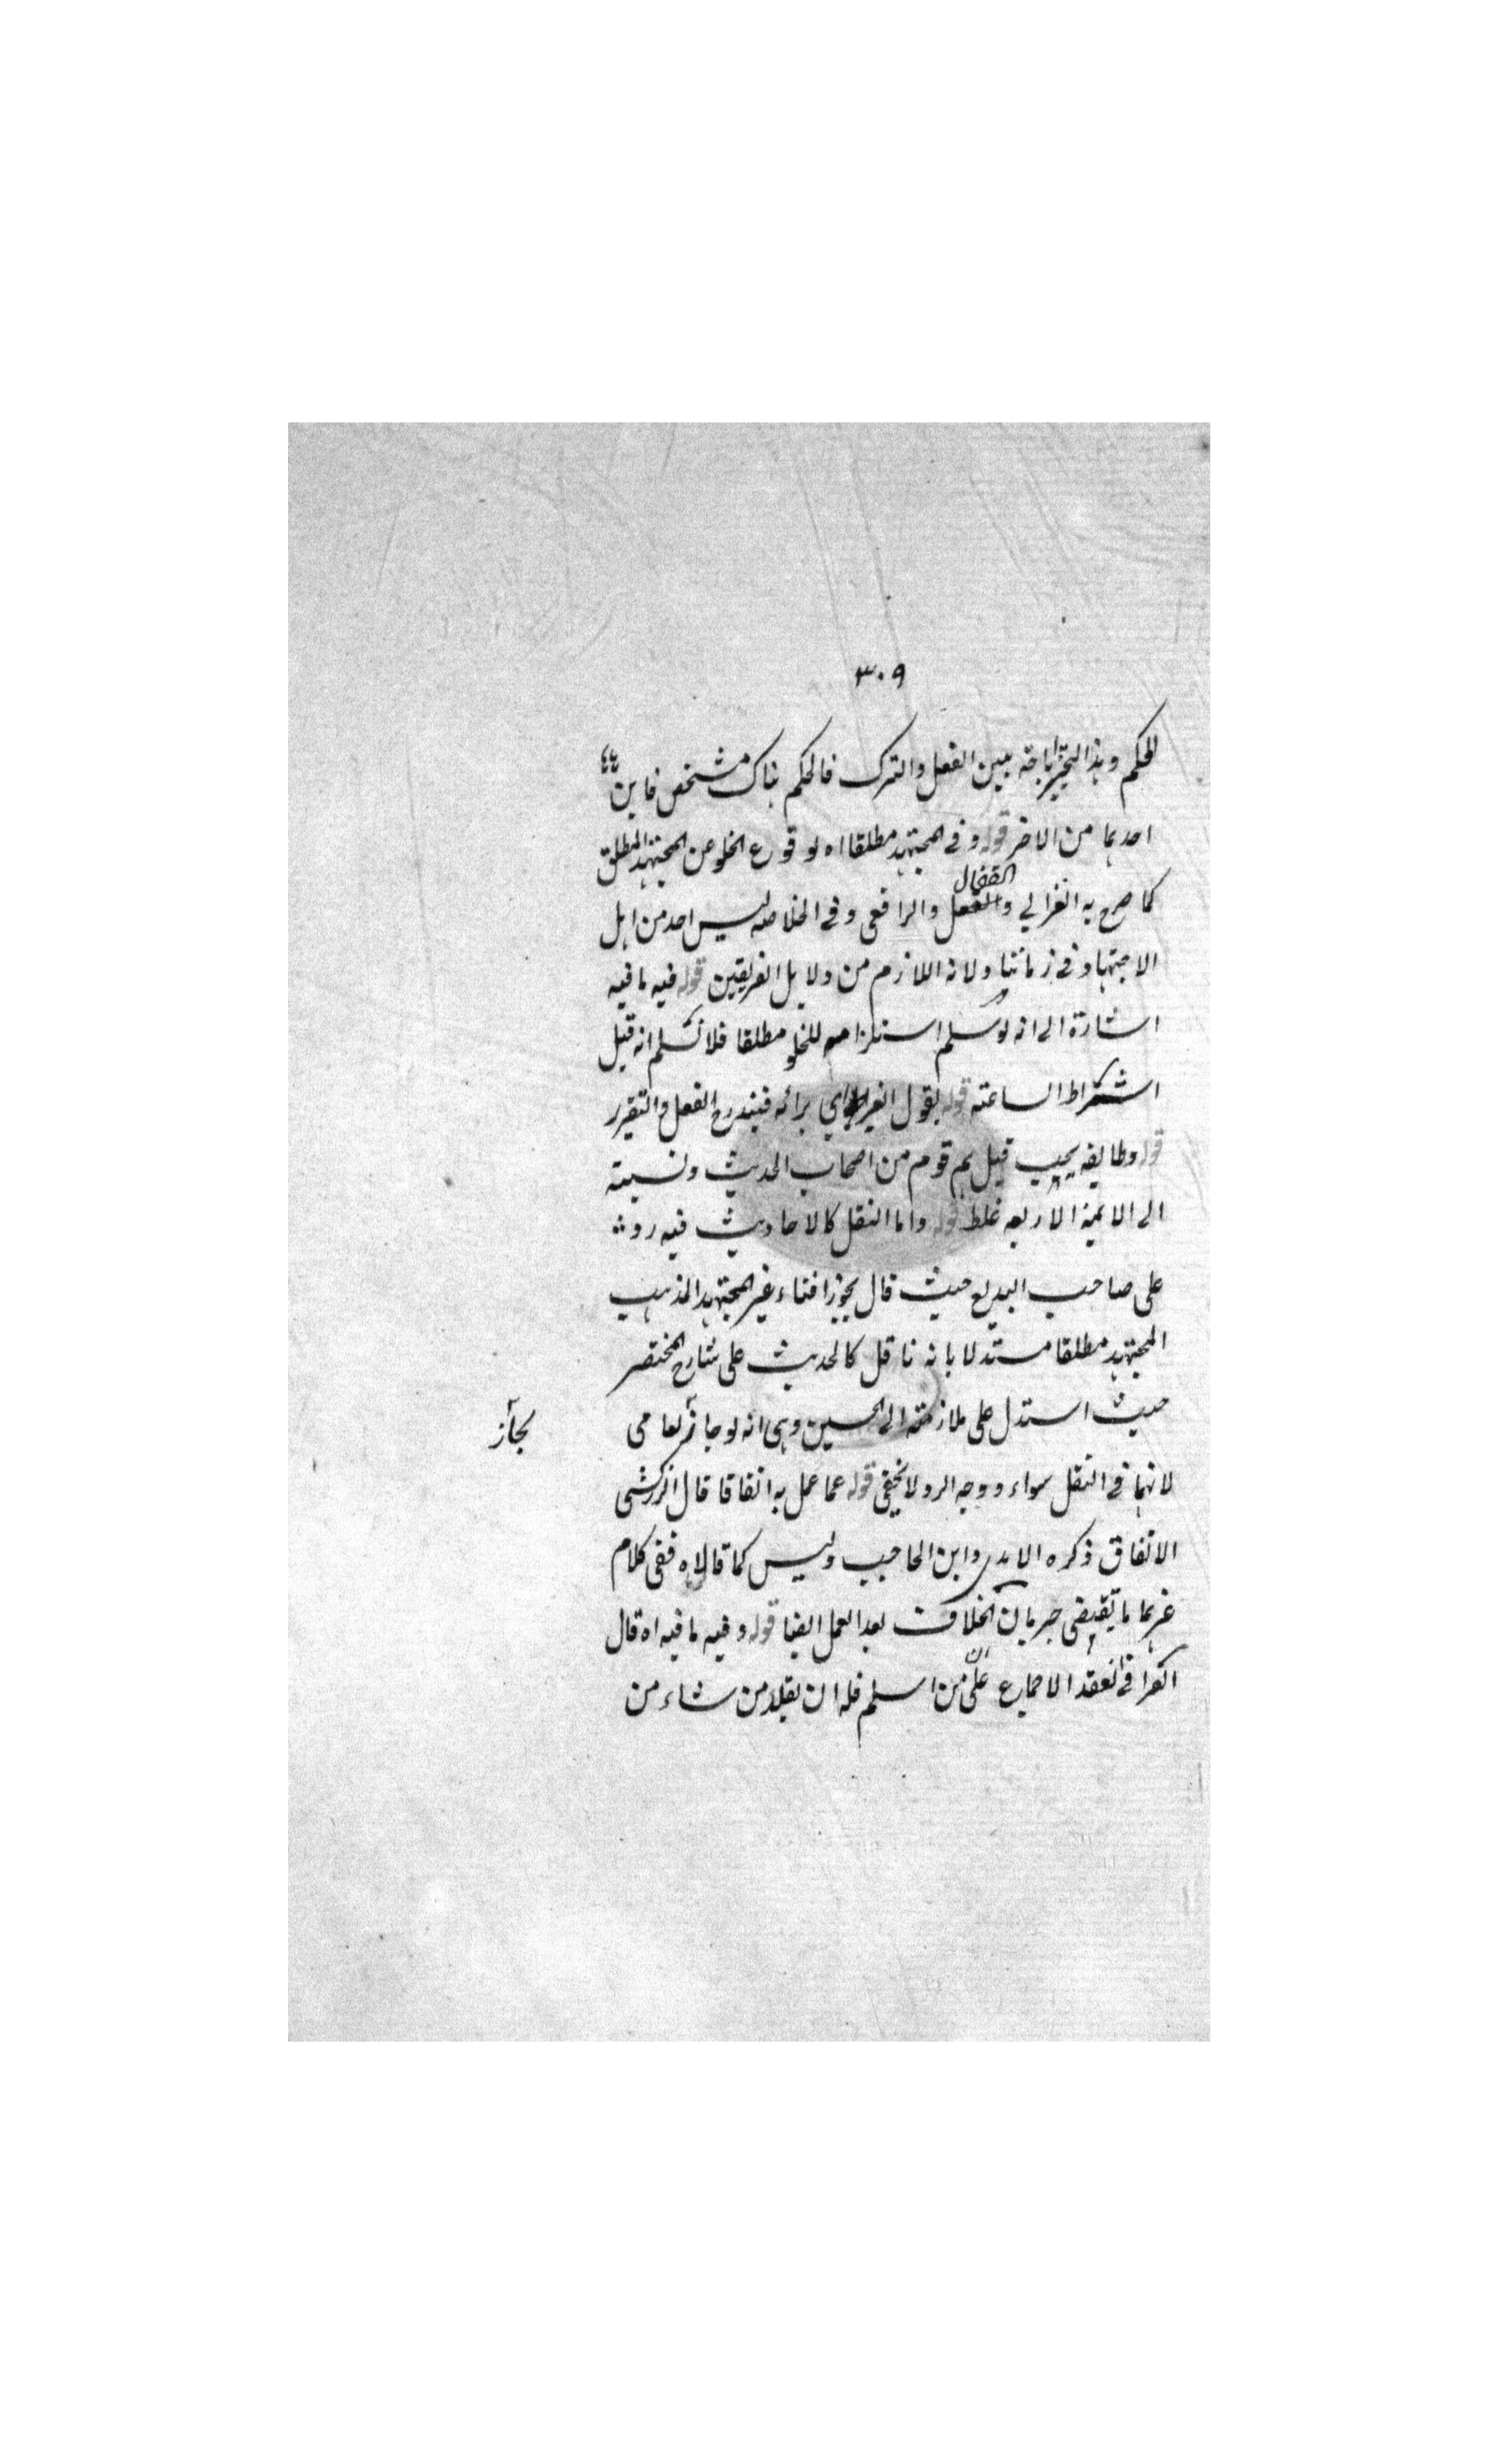 ٣٠٩
الحكم وهذا التخيير اباحة بين الفعل والترك فالحكم هناك مشخص فاين
احدهما من الاخر قوله وفى المجتهد مطلقا اه لوقوع الخلو عن المجتهد المطلق
كما صرح به الغزالي والقفال والرافعى وفى الخلاصه ليس احد من اهل
الاجتهاد فى زماننا ولانه اللازم من دلايل الفريقين قوله فيه ما فيه
اشارة الى انه لو سلم استلزامه للخلو مطلقا فلا نسلم انه قبل
اشتراط الساعته قوله بقول الغير اي برائه فيندرج الفعل والتقرير
قوله وطايفه يجب قيل هم قوم من اصحاب الحديث ونسبته
الى الايمة الاربعه غلط قوله واما النقل كالاحاديث فيه رد
على صاحب البديع حيث قال يجوز افتاء غير المجتهد المذهب
المجتهد مطلقا مستدلا بانه ناقل كالحديث على شارح المختصر
حيث استدل على ملازمته الى الحسين وهى انه لو جاز لعامى
لجاز
لانهما فى النقل سواء ووجه الرد لا يخفى قوله عما عمل به اتفاقا قال الزركشى
الاتفاق ذكره الامدى وابن الحاجب وليس كما قالاه ففى كلام
غيرهما ما يقتضى جريان الخلاف بعد العمل ايضا قوله وفيه ما فيه اه قال
القرافى انعقد الاجماع على ان من اسلم فله ان يقلد من شاء من